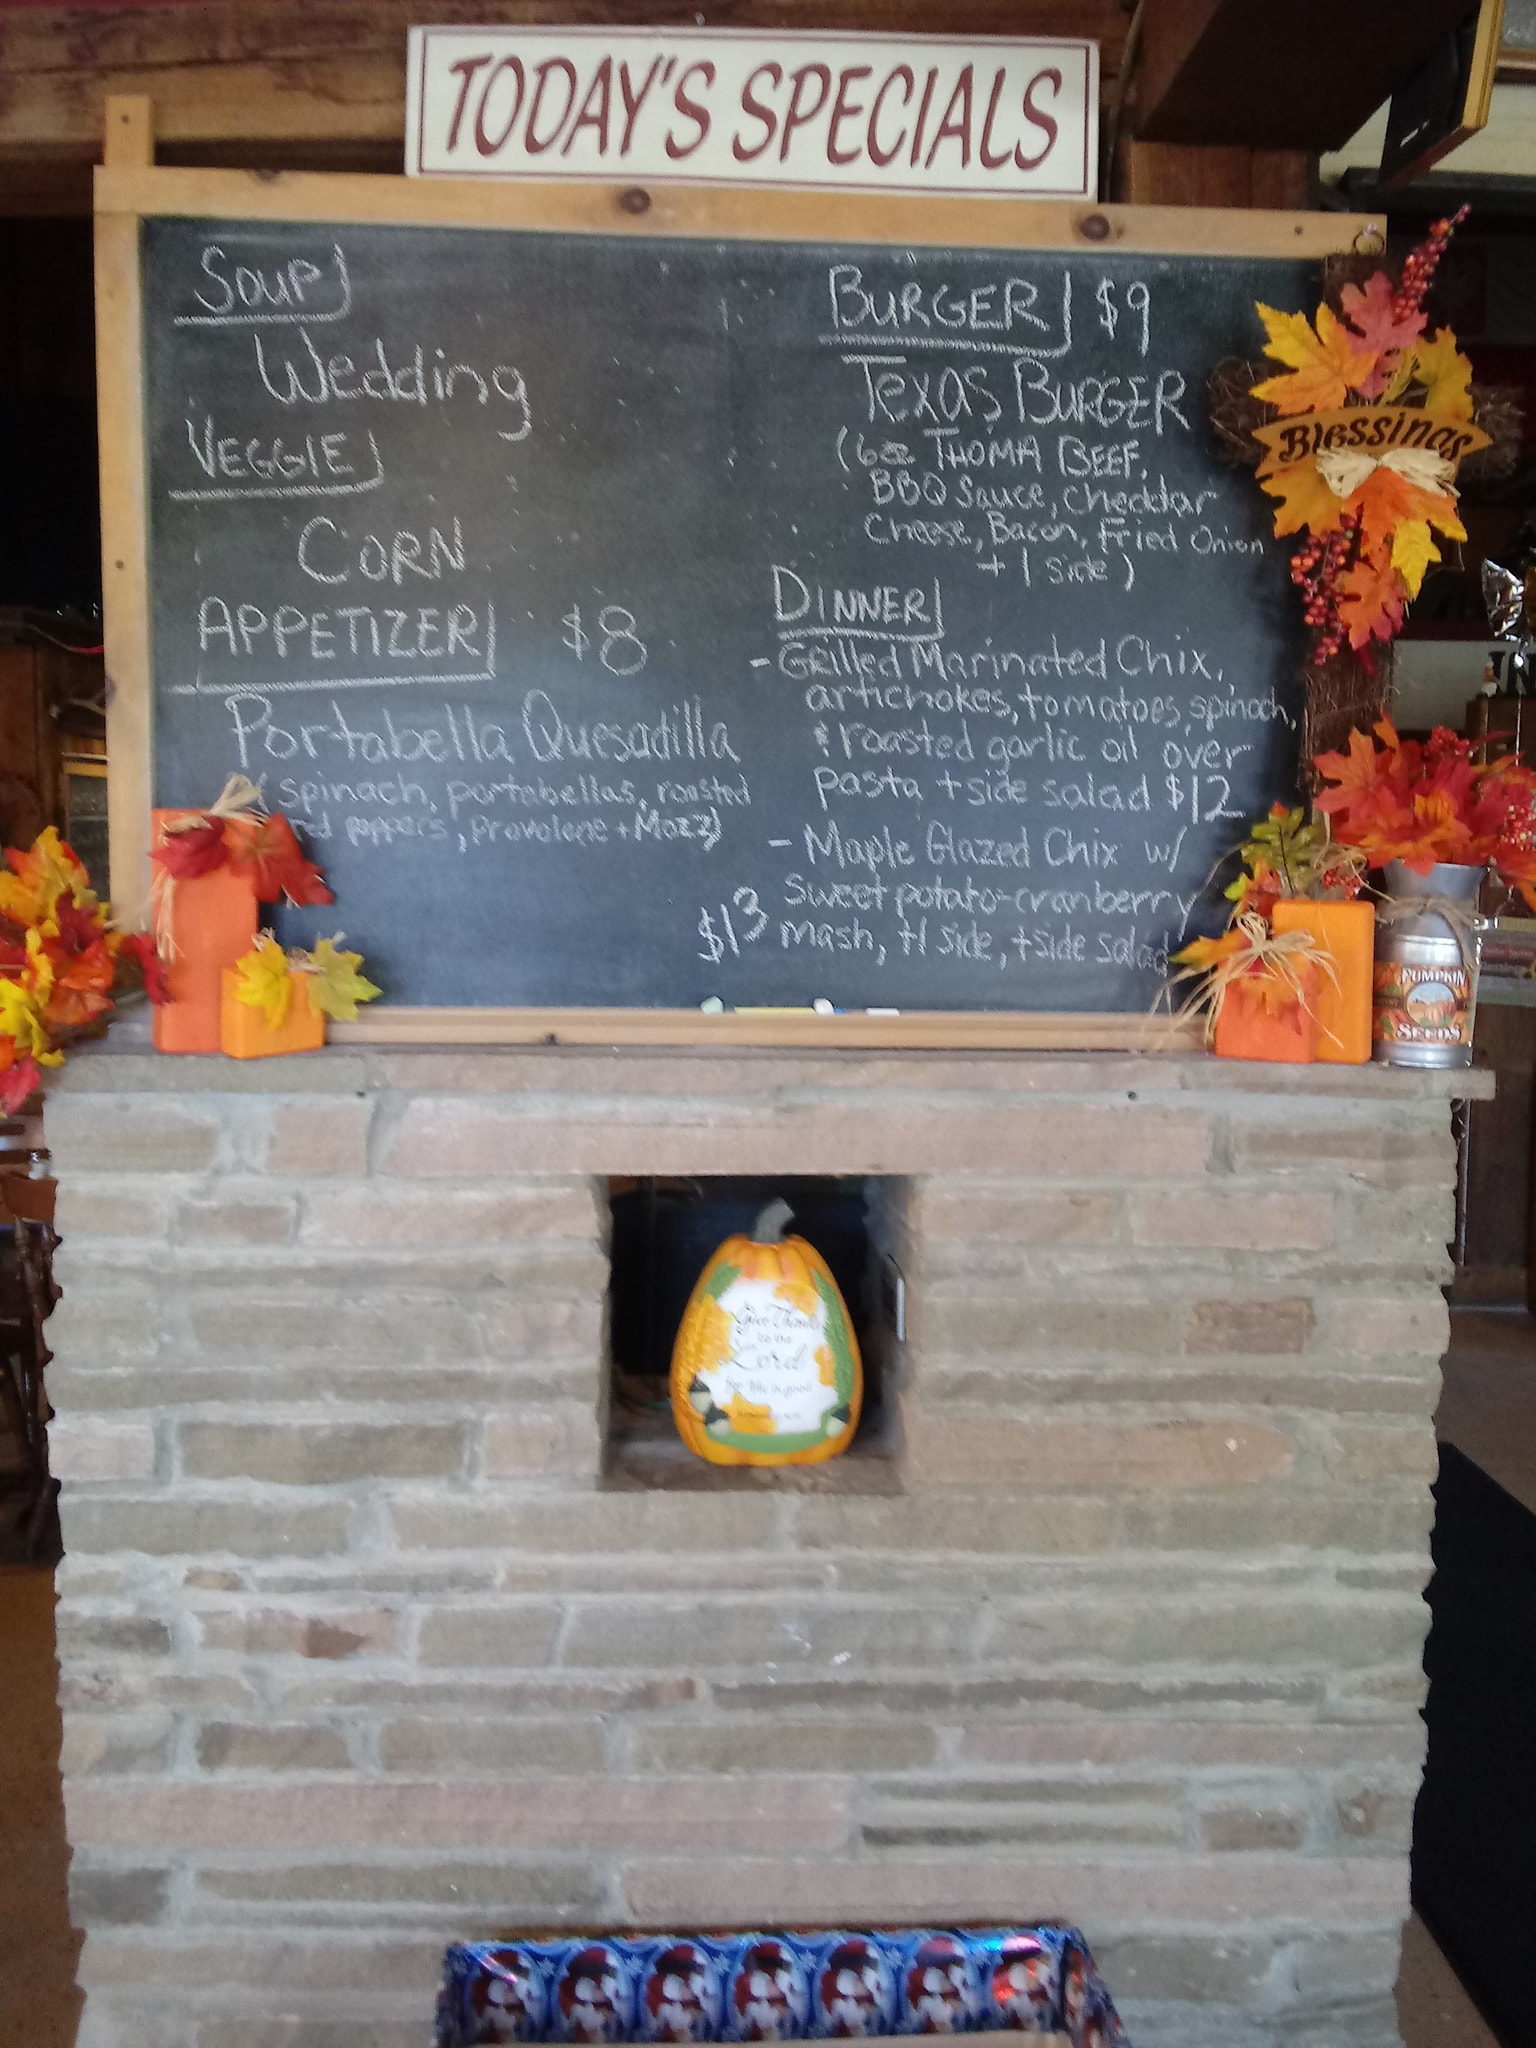 TODAY'S SPECIALS
SOUP
Wedding
VEGGIE
CORN
APPETIZER $8
Portabella Quesadilla
(spinach, portabellas, roasted
red peppers, Provolone + Mozz)
BURGER $9
TEXAS BURGER
(6oz THOMA BEEF,
BBQ Sauce, Cheddar
Cheese, Bacon, Fried Onion
+ 1 side)
DINNER
- Grilled Marinated Chix,
artichokes, tomatoes, spinach,
& roasted garlic oil over
pasta + side salad $12
- Maple Glazed Chix w/
Sweet potato-cranberry
$13 mash, +1 side, + side salad
Blessings
PUMPKIN
SEEDS
Give Thanks
to the
Lord